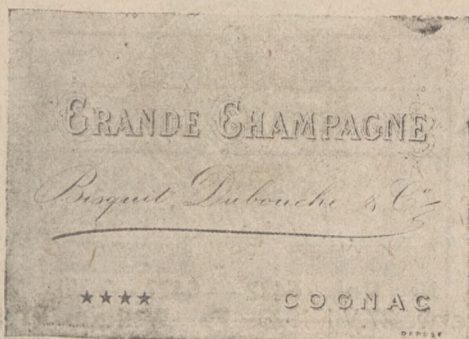 GRANDE CHAMPAGNE
Bisquit Dubouché & Co
★★★★ COGNAC
DÉPOSÉ